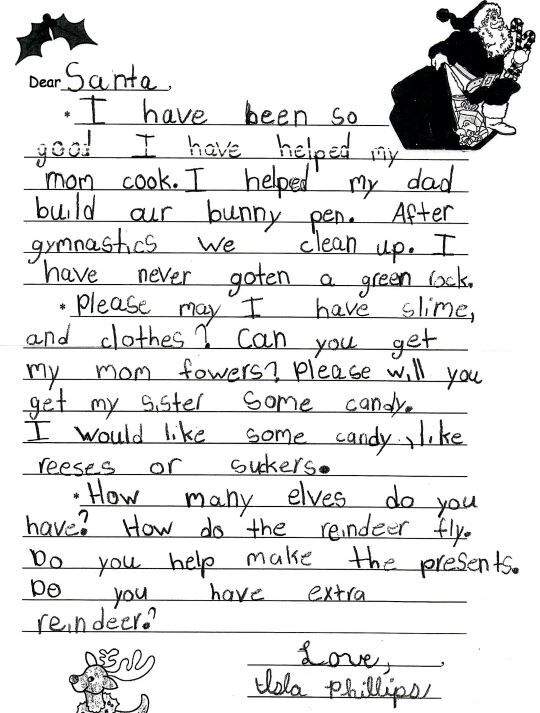 Dear Santa,
* I have been so
good I have helped my
mom cook. I helped my dad
build our bunny pen. After
gymnastics we clean up. I
have never goten a green lock.
* Please may I have slime,
and clothes? Can you get
my mom fowers? Please will you
get my sister some candy.
I would like some candy, like
reeses or suckers.
* How many elves do you
have? How do the reindeer fly.
Do you help make the presents.
Do you have extra
reindeer?
Love,
Isla Phillips